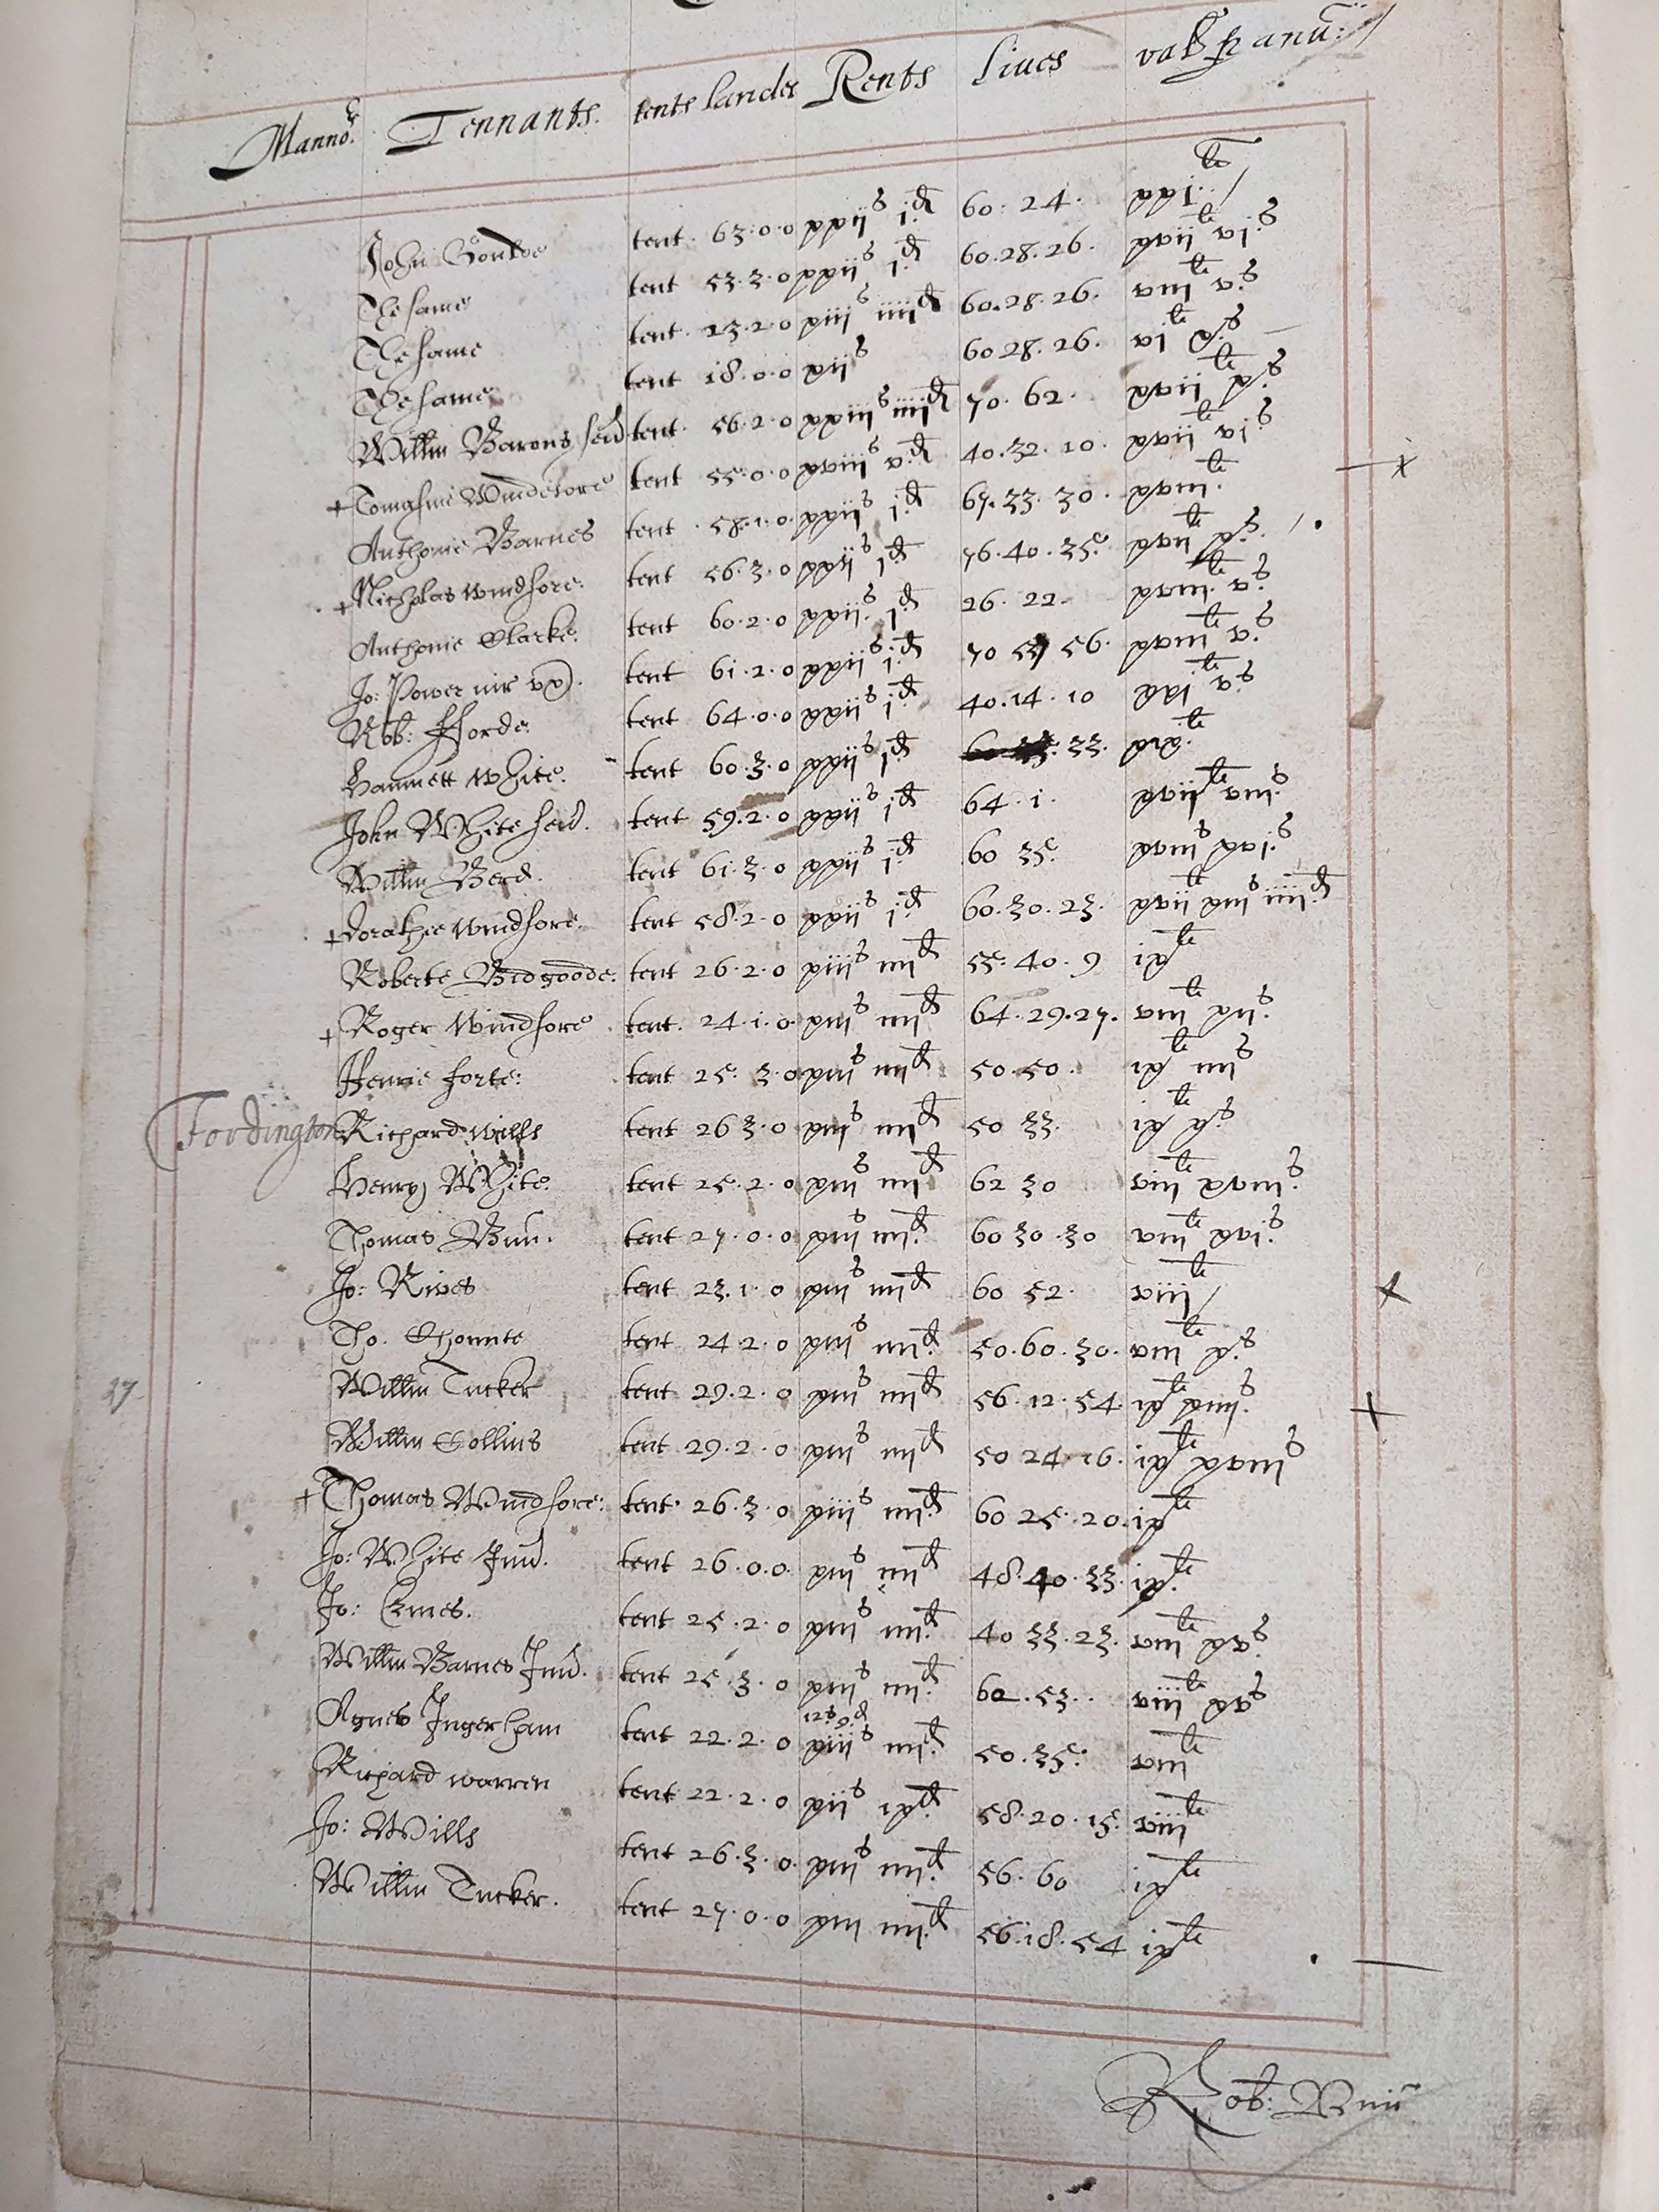 Manno:r Tennants. tents landes Rents Liues val p anu:
John Goulde tent. 63.0.0 xxijs jd 60. 24. xxj.li
The same tent 53.3.0 xxijs jd 60.28.26. xvijli vj.s
The same tent. 23.2.0 xiijs iiijd 60.28.26. viijli v.s
The same tent 18.0.0 xijs 60 28. 26. vjli x.s
Willm Barons sen tent. 56.2.0 xxiijs iiijd 70. 62. xvijli x.s
+ Tomasine Windesore tent 55.0.0 xviijs v.d 40.32.10. xvijli vjs
Anthonie Barnes tent. 58.1.0. xxijs jd 67.33.30. xviij.li
+ Nicholas windsore: tent 56.3.0 xxijs jd 76.40.35. xvijli x.s
Anthonie Clarke: tent 60.2.0 xxijs. jd 26. 22. xviijli v.s
Jo: Power iur vx). tent 61.2.0 xxijs j.d 70 57 56. xviijli v.s
Rob: fforde: tent 64.0.0 xxijs jd 40.14.10 xxjli v.s
Hamnett White. tent 60.3.0 xxijs jd 33. xix.li
John White sen. tent 59.2.0 xxijs jd 64. 1. xvijli viij.s
Willm Berd. tent 61.3.0 xxijs j.d 60 35. xviijs xvj.s
+ Dorathie windsore. tent 58.2.0 xxijs j.d 60.30.23. xvijli xiijs iiij.d
Roberte Bidgoode. tent 26.2.0 xiijs iiijd 55. 40. 9 ixli
+ Roger Windsore tent. 24.1.0. xiijs iiijd 64.29.27. viijli xijs
Henrie forte: tent 25.3.0 xiijs iiijd 50.50. ixli iiijs
Fordington Richard Wills tent 26 3.0 xiijs iiijd 50 33. ixli x.s
Henry White. tent 25.2.0 xiijs iiijd 62 30 viijli xviij.s
Thomas Bun. tent 27.0.0 xiijs iiij.d 60 30.30 viijli xvj.s
Jo: Rives tent 23.1.0 xiijs iiijd 60 52. viijli
Tho. tent 24.2.0 xiijs iiij.d 50.60.30. viijli x.s
37 Willm Tucker tent 29.2.0 xiijs iiijd 56.12.54. ixli xiiij.s
Willm Collins tent 29.2.0 xiijs iiijd 50 24.16. ixli xviijs
+ Thomas Windsore: tent. 26.3.0 xiijs iiij.d 60 25.20. ixli
Jo: White Jun. tent 26.0.0. xiijs iiijd 48.40.33. ix.li
Jo: Ernes. tent 25.2.0 xiijs iiij.d 40 33.23. viijli xvs
Willm Barnes Jun. tent 25.3.0 xiijs iiij.d 60.53.. viijli xvs
12s 9d
Agnes Ingerham tent 22.2.0 xiijs iiij.d 50.35. viijli
Richard warren tent 22.2.0 xijs ix.d 58.20.15. viijli
Jo: Wills tent 26.3.0. xiijs iiij.d 56. 60 ixli
Willm Tucker. tent 27.0.0 xiij iiij.d 56.18.54 ixli
Rob: